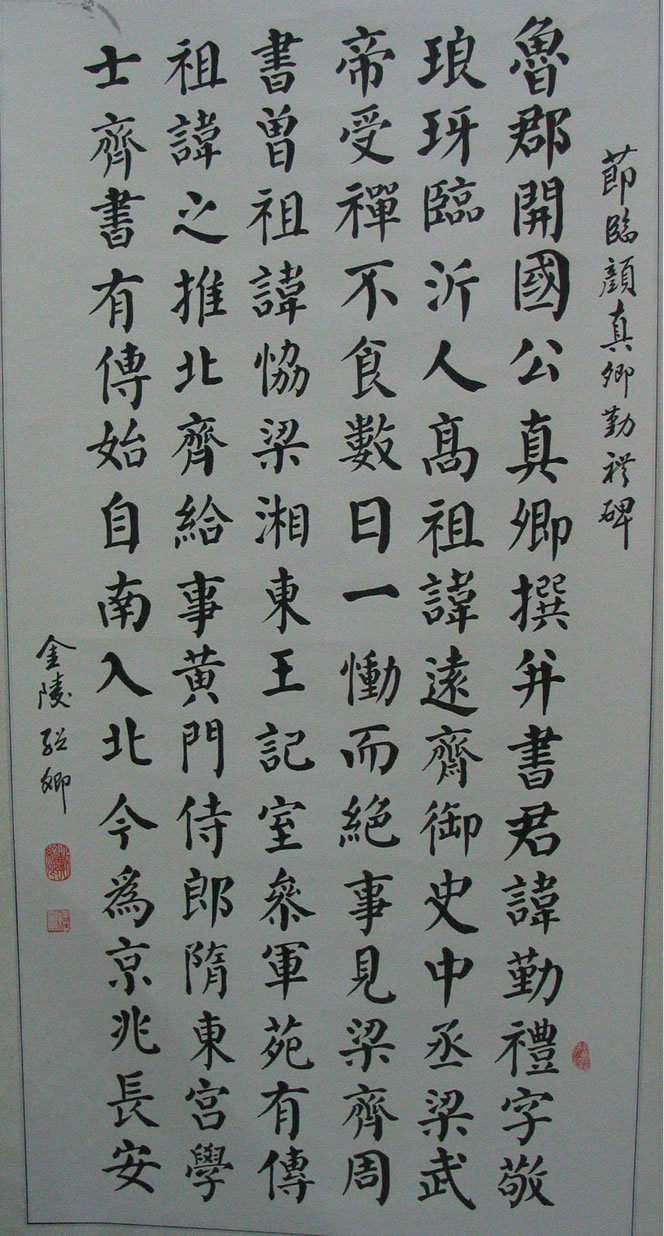 節臨顔真卿勤礼碑
魯郡開國公真卿撰并書君諱勤禮字敬
琅玡臨沂人髙祖諱遠齊御史中丞梁武
帝受禪不食數日一慟而絶事見梁齊周
書曽祖諱恊梁湘東王記室叅軍苑有傳
祖諱之推北齊給事黄門侍郎隋東宫學
士齊書有傳始自南入北今為京兆長安
金陵 卿